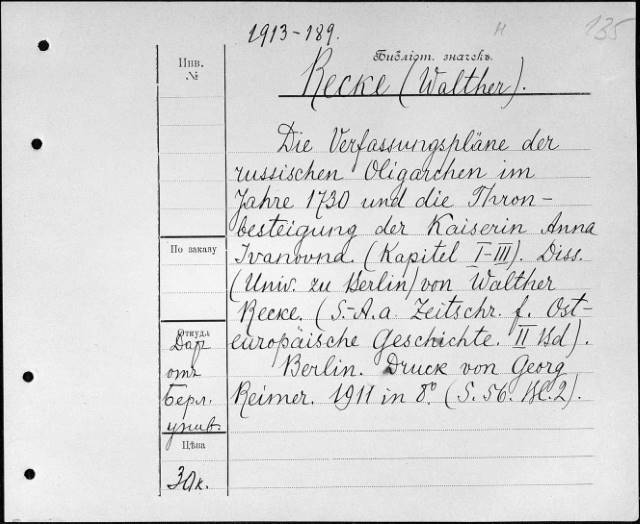 1913-189.
н 135
Инв.
№
Библіот. значекъ.
Recke (Walther).
Die Verfassungspläne der
russischen Oligarchen im
Jahre 1730 und die Thron-
besteigung der Kaiserin Anna
Ivanovna. (Kapitel I-III). Diss.
(Univ. zu Berlin) von Walther
Recke. (S.-A. a Zeitschr. f. Ost-
europäische Geschichte. II Bd).
Berlin. Druck von Georg
Reimer. 1911 in 8°. (S. 56. Bl. 2).
По заказу
Откуда
Дар
отъ
Берл.
унив.
Цѣна